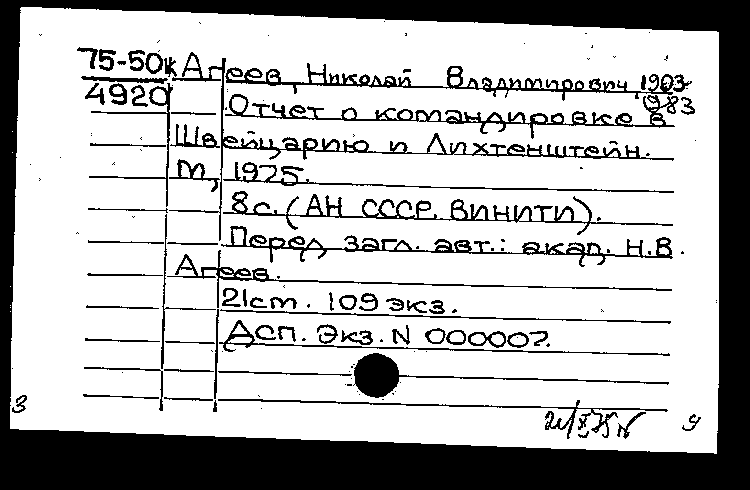 75-50к Агеев, Николай Владимирович, 1903-
4920 1983
Отчет о командировке в
Швейцарию и Лихтенштейн.
М, 1975.
8с. (АН СССР. ВИНИТИ).
Перед загл. авт.: акад. Н.В.
Агеев.
21см. 109 экз.
ДСП. Экз. N 000007.
3
9